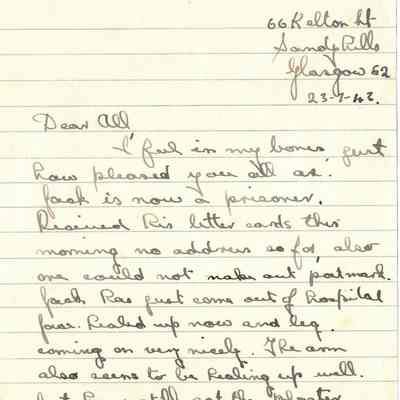 66 Kelton St
Sandyhills
Glasgow E2
23-7-43.
Dear All
I feel in my bones just
how pleased you all are.
Jack is now a prisoner.
Received his letter cards this
morning no address so far, also
one could not make out postmark.
Jack has just come out of hospital
face. healed up now and leg
coming on very nicely. The arm
also seems to be healing up well.
but he still got the plaster